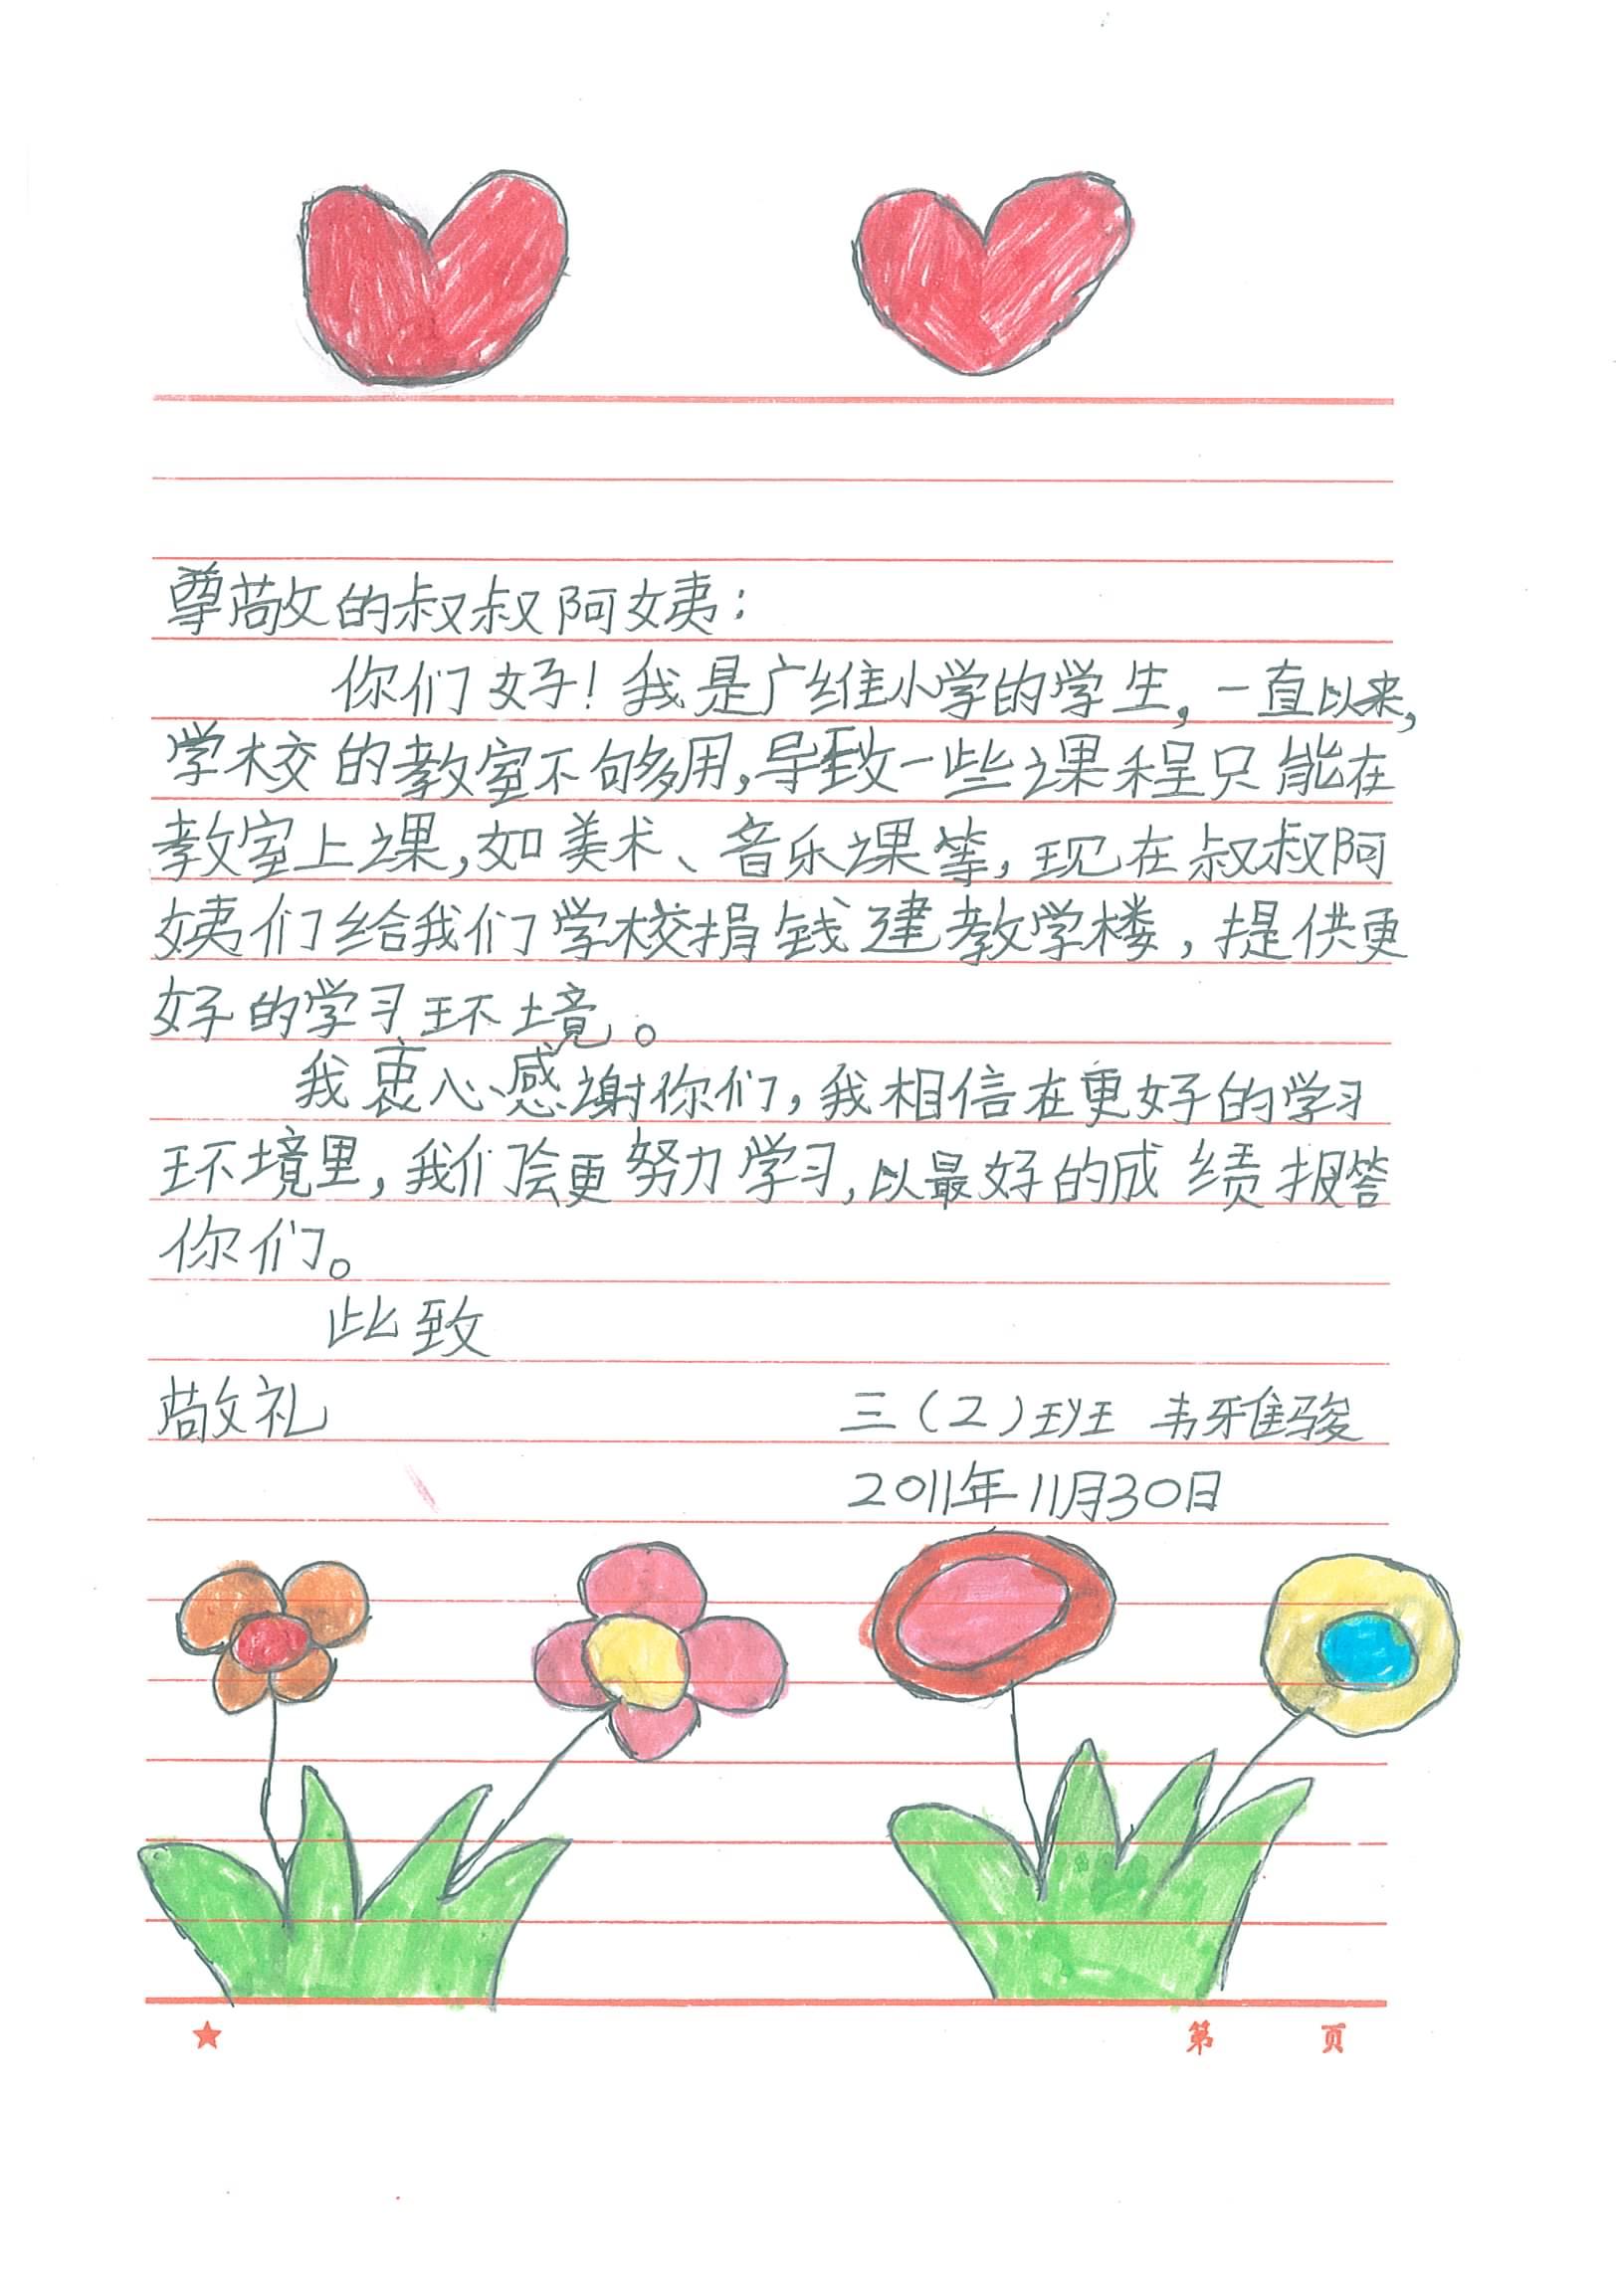 尊敬的叔叔阿姨：
你们好！我是广维小学的学生，一直以来，
学校的教室不够用，导致一些课程只能在
教室上课，如美术、音乐课等，现在叔叔阿
姨们给我们学校捐钱建教学楼，提供更
好的学习环境。
我衷心感谢你们，我相信在更好的学习
环境里，我们会更努力学习，以最好的成绩报答
你们。
此致
敬礼 三（2）班 韦雅骏
2011年11月30日
★ 第 页